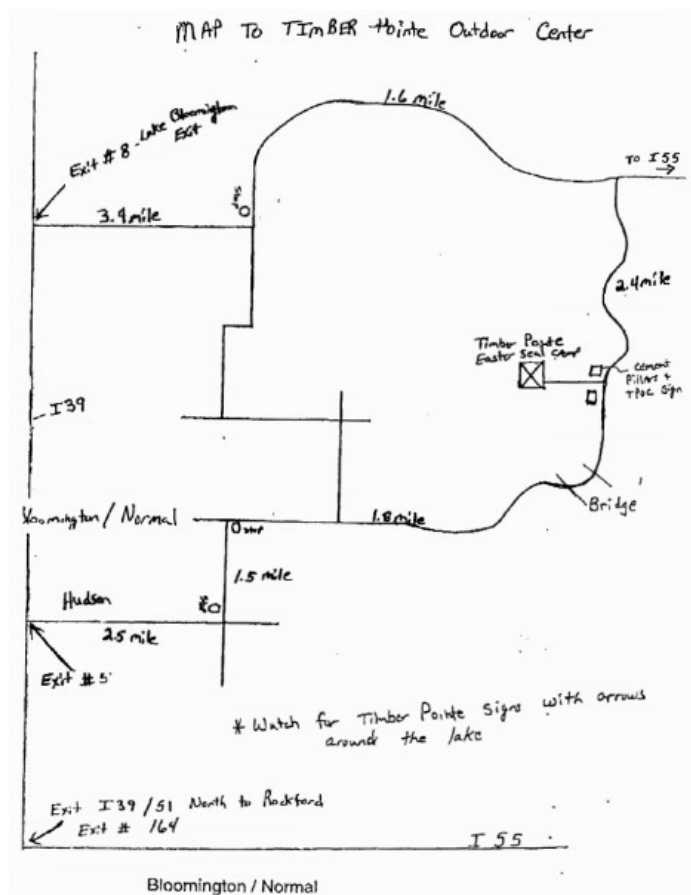 MAP TO TIMBER Hointe Outdoor Center
1.6 mile
Exit # 8 - Lake Bloomington
Exit
TO I55
stop
3.4 mile
2.4 mile
Timber Pointe
Easter Seal Camp
Cement
Pillars &
TPOC Sign
I39
Bloomington / Normal
1.8 mile
Bridge
stop
1.5 mile
Hudson
2.5 mile
Exit # 5
* Watch for Timber Pointe Signs with arrows
around the lake
Exit I39/51 North to Rockford
Exit # 164
I 55
Bloomington / Normal